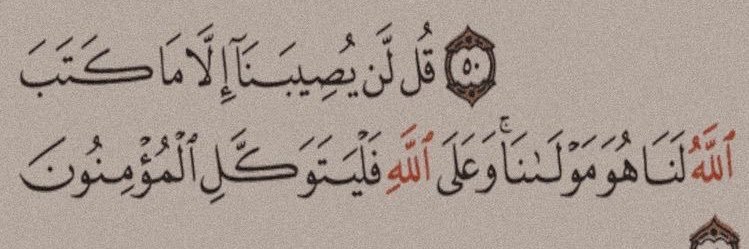 ٥٠ قُل لَّن يُصِيبَنَآ إِلَّا مَا كَتَبَ
ٱللَّهُ لَنَا هُوَ مَوْلَىٰنَاۚ وَعَلَى ٱللَّهِ فَلْيَتَوَكَّلِ ٱلْمُؤْمِنُونَ